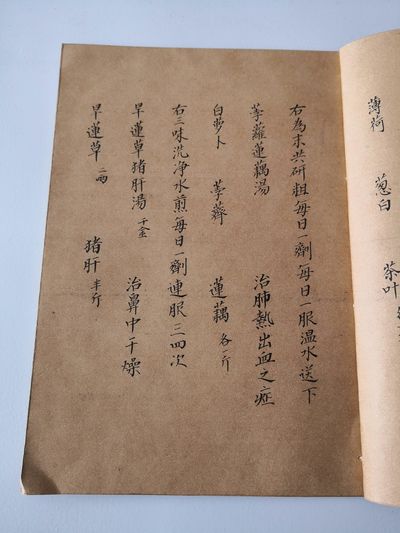 薄荷 葱白 茶叶
右為末共研粗每日一劑每日一服温水送下
荸蘿蓮藕湯 治肺熱出血之症
白萝卜 荸薺 蓮藕 各一斤
右三味洗淨水煎每日一劑連服三四次
早蓮草猪肝湯 千金 治鼻中干燥
早蓮草 二兩 猪肝 半斤